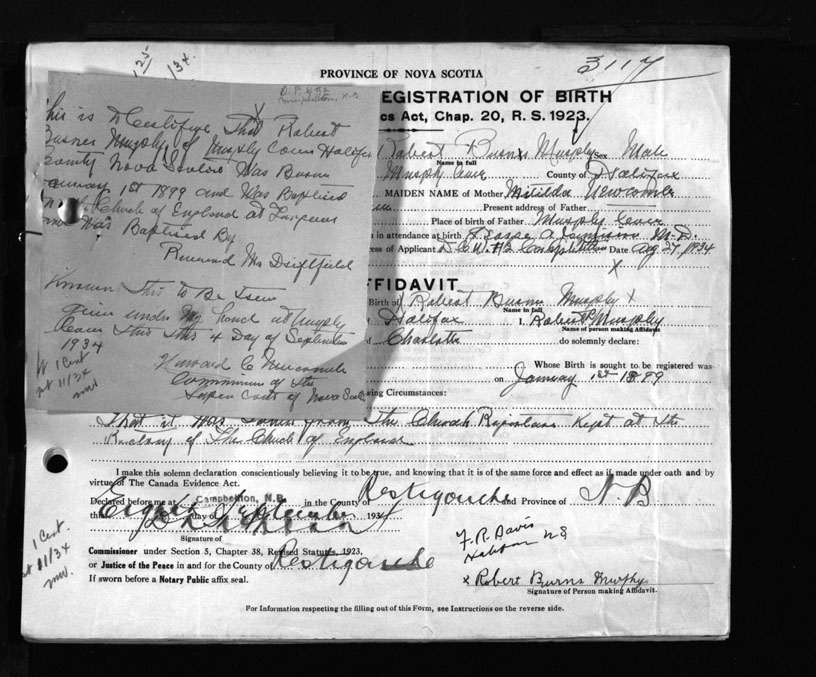 3117
125
134.
PROVINCE OF NOVA SCOTIA
EGISTRATION OF BIRTH
cs Act, Chap. 20, R. S. 1923.
This is To Certifie That Robert
Burnes Murphy of Murphy Cove Halifax
County Nova Scotia Was Bourn
January 1st 1899 and Was Baptised
Church of England at
Was Baptised By
Reverend Mr Driffield
Known This to Be True
Given under My hand at Murphy
Cove This This 4 Day of September
1934
Howard C Newcomb
of the
Supen Court of Nova Scotia
1 Cert
11/34
Robert Burns Murphy Sex Male
Name in full
Murphy Cove County of Halifax
MAIDEN NAME of Mother Mitilda Newcomb
Present address of Father
Place of birth of Father Murphy Cove
in attendance at birth M.D.
ress of Applicant Campbellton Date Aug 27, 1934
FFIDAVIT
Birth of Robert Burns Murphy
Name in full
Halifax I, Robert Murphy
Name of person making Affidavit
Charlotte do solemnly declare:
Whose Birth is sought to be registered was
on January 1st 1899
ing Circumstances:
That it Was Taken from The Church Registers Kept at the
Rectory of The Church of England
I make this solemn declaration conscientiously believing it to be true, and knowing that it is of the same force and effect as if made under oath and by
virtue of The Canada Evidence Act.
Declared before me at Campbellton, N.B. in the County of Restigouche and Province of N.B
this Eighth day of September 1934
Signature of
Commissioner under Section 5, Chapter 38, Revised Statutes, 1923,
or Justice of the Peace in and for the County of Restigouche
If sworn before a Notary Public affix seal.
F. R. Davis
Halifax NS
x Robert Burns Murphy
Signature of Person making Affidavit.
1 Cert.
11/34
For Information respecting the filling out of this Form, see Instructions on the reverse side.